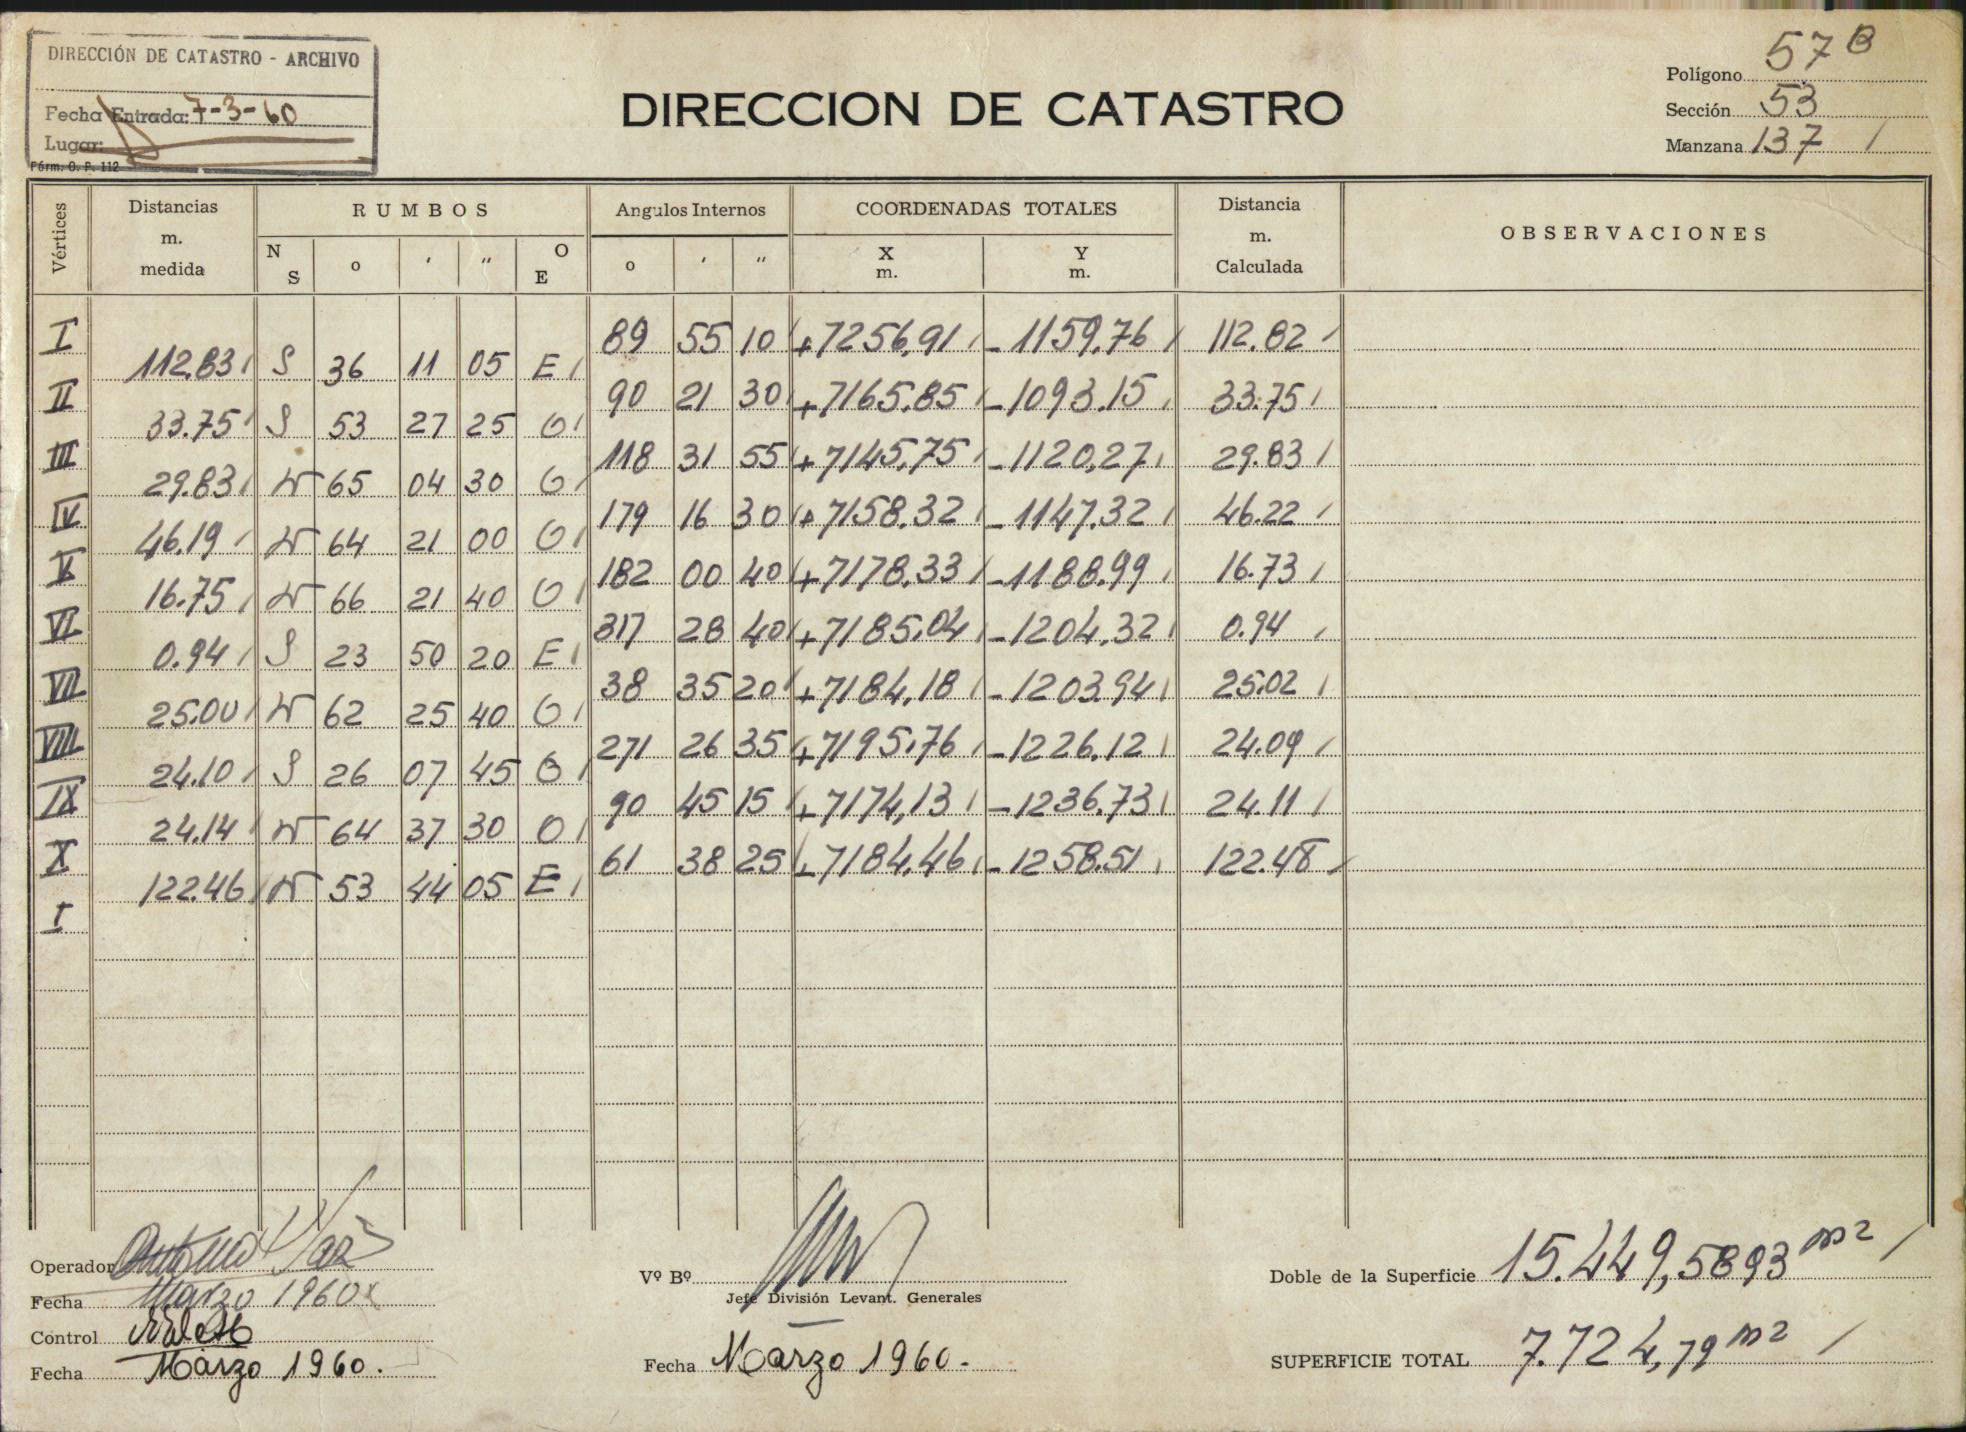 DIRECCIÓN DE CATASTRO - ARCHIVO
Fecha Entrada: 7-3-60
Lugar:
Fórm. O. P. 112
DIRECCION DE CATASTRO
Polígono 57 B
Sección 53
Manzana 137
Vértices Distancias m. medida RUMBOS N S o ′ ″ O E Angulos Internos o ′ ″ COORDENADAS TOTALES X m. Y m. Distancia m. Calculada OBSERVACIONES
I 89 55 10 +7256,91 -1159,76 112.82
112.83 S 36 11 05 E
II 90 21 30 +7165,85 -1093.15 33.75
33.75 S 53 27 25 O
III 118 31 55 +7145,75 -1120,27 29.83
29.83 N 65 04 30 O
IV 179 16 30 +7158.32 -1147.32 46.22
46.19 N 64 21 00 O
V 182 00 40 +7178,33 -1188,99 16.73
16.75 N 66 21 40 O
VI 317 28 40 +7185,04 -1204,32 0.94
0.94 S 23 50 20 E
VII 38 35 20 +7184,18 -1203.94 25.02
25.00 N 62 25 40 O
VIII 271 26 35 +7195,76 -1226.12 24.09
24.10 S 26 07 45 O
IX 90 45 15 +7174,13 -1236.73 24.11
24.14 N 64 37 30 O
X 61 38 25 +7184,46 -1258.51 122.48
122.46 N 53 44 05 E
I
Operador
Fecha Marzo 1960
Control
Fecha Marzo 1960.
Vº Bº
Jefe División Levant. Generales
Fecha Marzo 1960.
Doble de la Superficie 15.449,5893 m2
SUPERFICIE TOTAL 7.724,79 m2